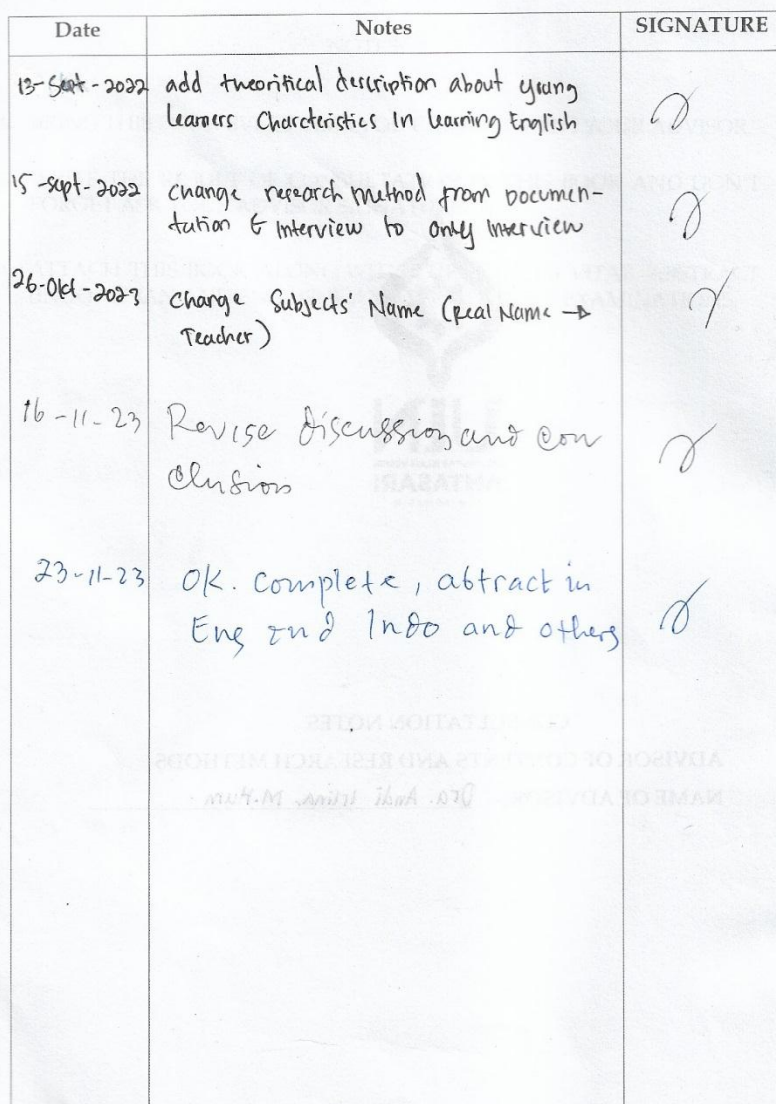 Date Notes SIGNATURE
13-Sept-2022 add theoritical description about young
learners Charcteristics In learning English
15-sept-2022 Change research method from Documen-
tation & Interview to only Interview
26-Okt-2023 Change Subjects' Name (Real Name →
Teacher)
16-11-23 Revise discussion and con
clusion
23-11-23 OK. complete, abtract in
Eng and Indo and others